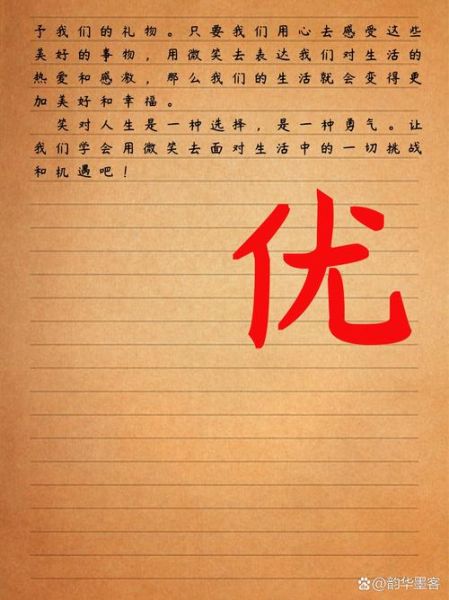 予我们的礼物。只要我们用心去感受这些
美好的事物，用微笑去表达我们对生活的
热爱和感激，那么我们的生活就会变得更
加美好和幸福。
笑对人生是一种选择，是一种勇气。让
我们学会用微笑去面对生活中的一切挑战
和机遇吧！
优
韵华墨客